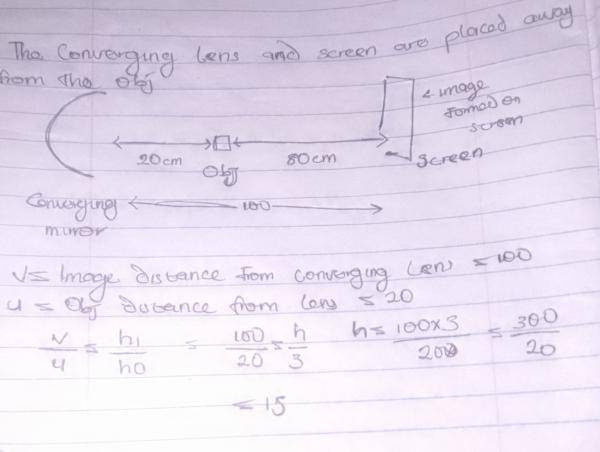 The Converging Lens and screen are placed away
from the Obj
← image
formed on
screen
20cm
80cm
Obj
screen
Converging
mirror
100
V = Image distance from converging Lens = 100
u = Obj distance from lens = 20
V/u = h1/h0 = 100/20 = h/3 h = 100x3/20 = 300/20
= 15